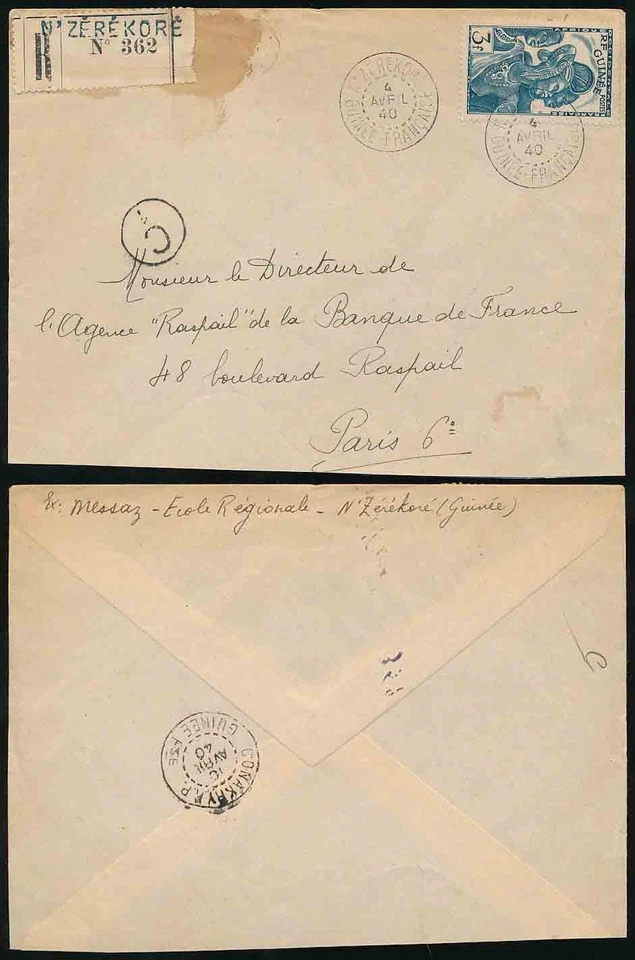 N'ZÉRÉKORÉ
R N° 362
N'ZEREKORE
4
AVRIL
40
GUINÉE FRANÇAISE
3F
RF GUINÉE POSTES
4
AVRIL
40
GUINÉE FRANÇAISE
Monsieur le Directeur de
l'Agence "Raspail" de la Banque de France
48 boulevard Raspail
Paris 6e
Ex: Messaz - Ecole Régionale - N'Zérékoré (Guinée)
CONAKRY R.P.
10
AVRIL
40
GUINÉE FSE